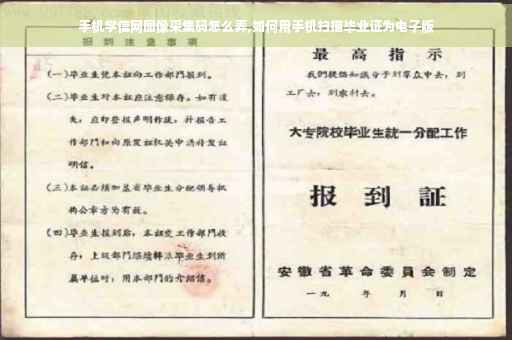 手机学信网图像采集码怎么弄,如何用手机扫描毕业证为电子版
报到注意事项
(一)毕业生凭本证向工作部門报到。
(二)毕业生对本証应注意保存。如有遺
失,应即登报声明作废,并报告工
作部門和向原发証机关申請补发証
明信。
(三)本証必须加盖省毕业生分配領导机
构公章方为有效。
(四)毕业生报到后,本証交工作部門收
存,上级部門
属单位时,用本部門的介绍信。
最高指示
我們提倡知識分子到羣众中去,到
工厂去,到农村去。
大专院校毕业生統一分配工作
报到証
安徽省革命委員会制定
一九 年 月 日